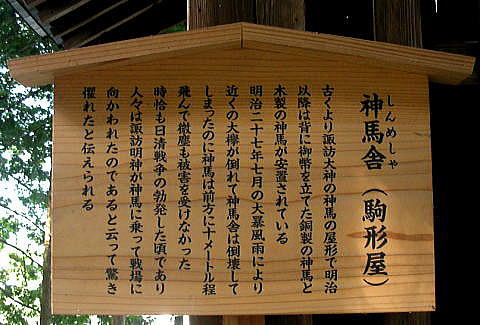 神馬舎（駒形屋）
しんめしゃ
古くより諏訪大神の神馬の屋形で明治
以降は背に御幣を立てた銅製の神馬と
木製の神馬が安置されている
明治二十七年七月の大暴風雨により
近くの大欅が倒れて神馬舎は倒壊して
しまったのに神馬は前方に十メートル程
飛んで微塵も被害を受けなかった
時恰も日清戦争の勃発した頃であり
人々は諏訪明神が神馬に乗って戦場に
向かわれたのであると云って驚き
懼れたと伝えられる